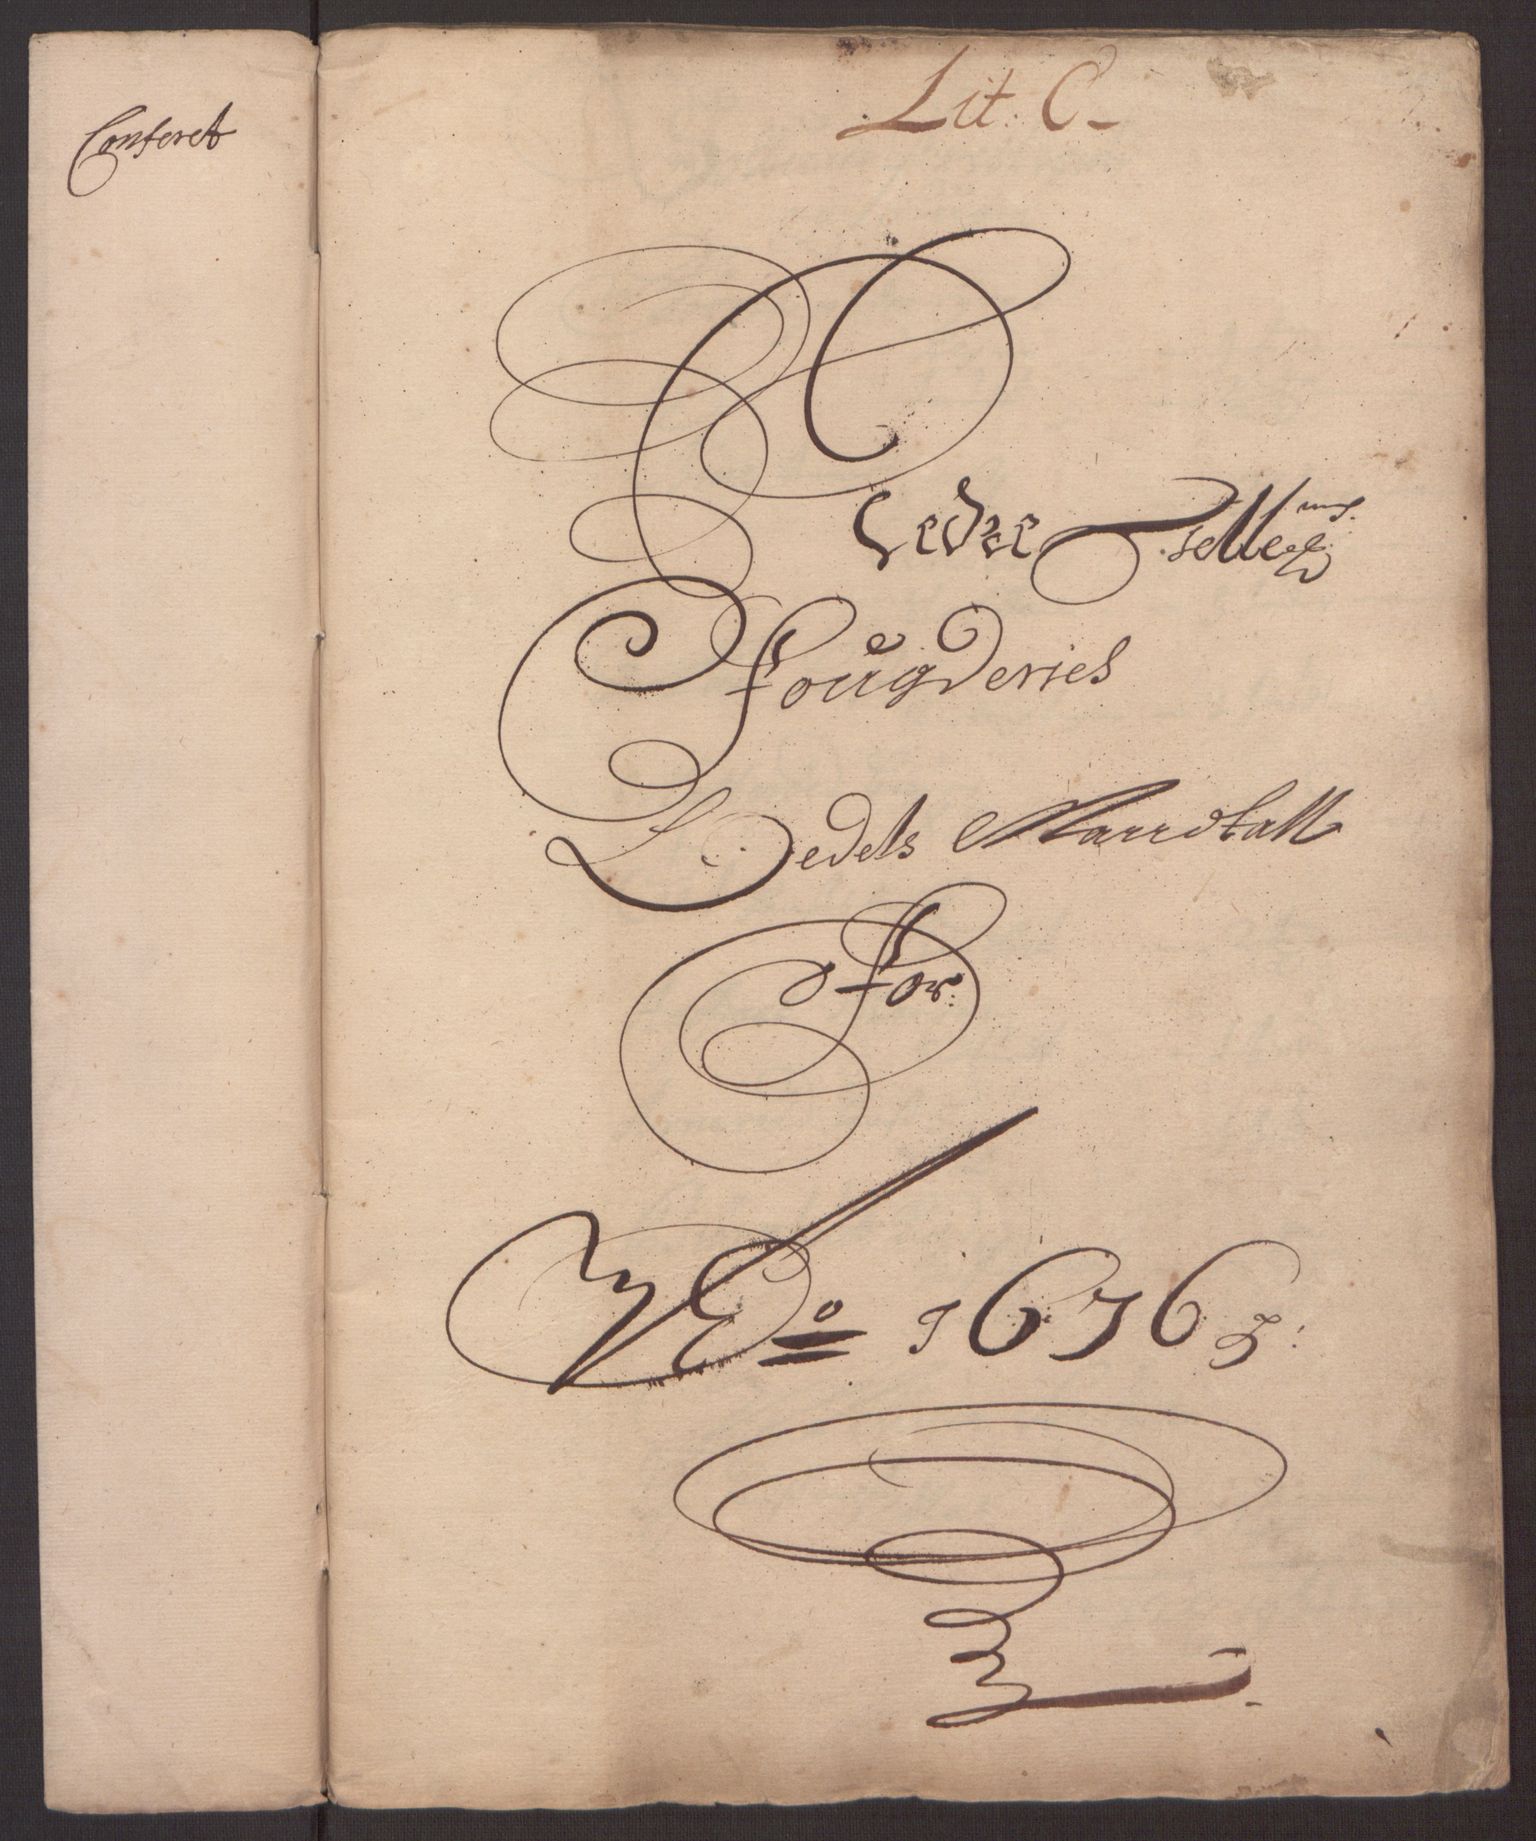 Conferet
Lit. C
Nedre Tellemks.
Fougderies
Ledets Mandtall
For.
Ao 1676